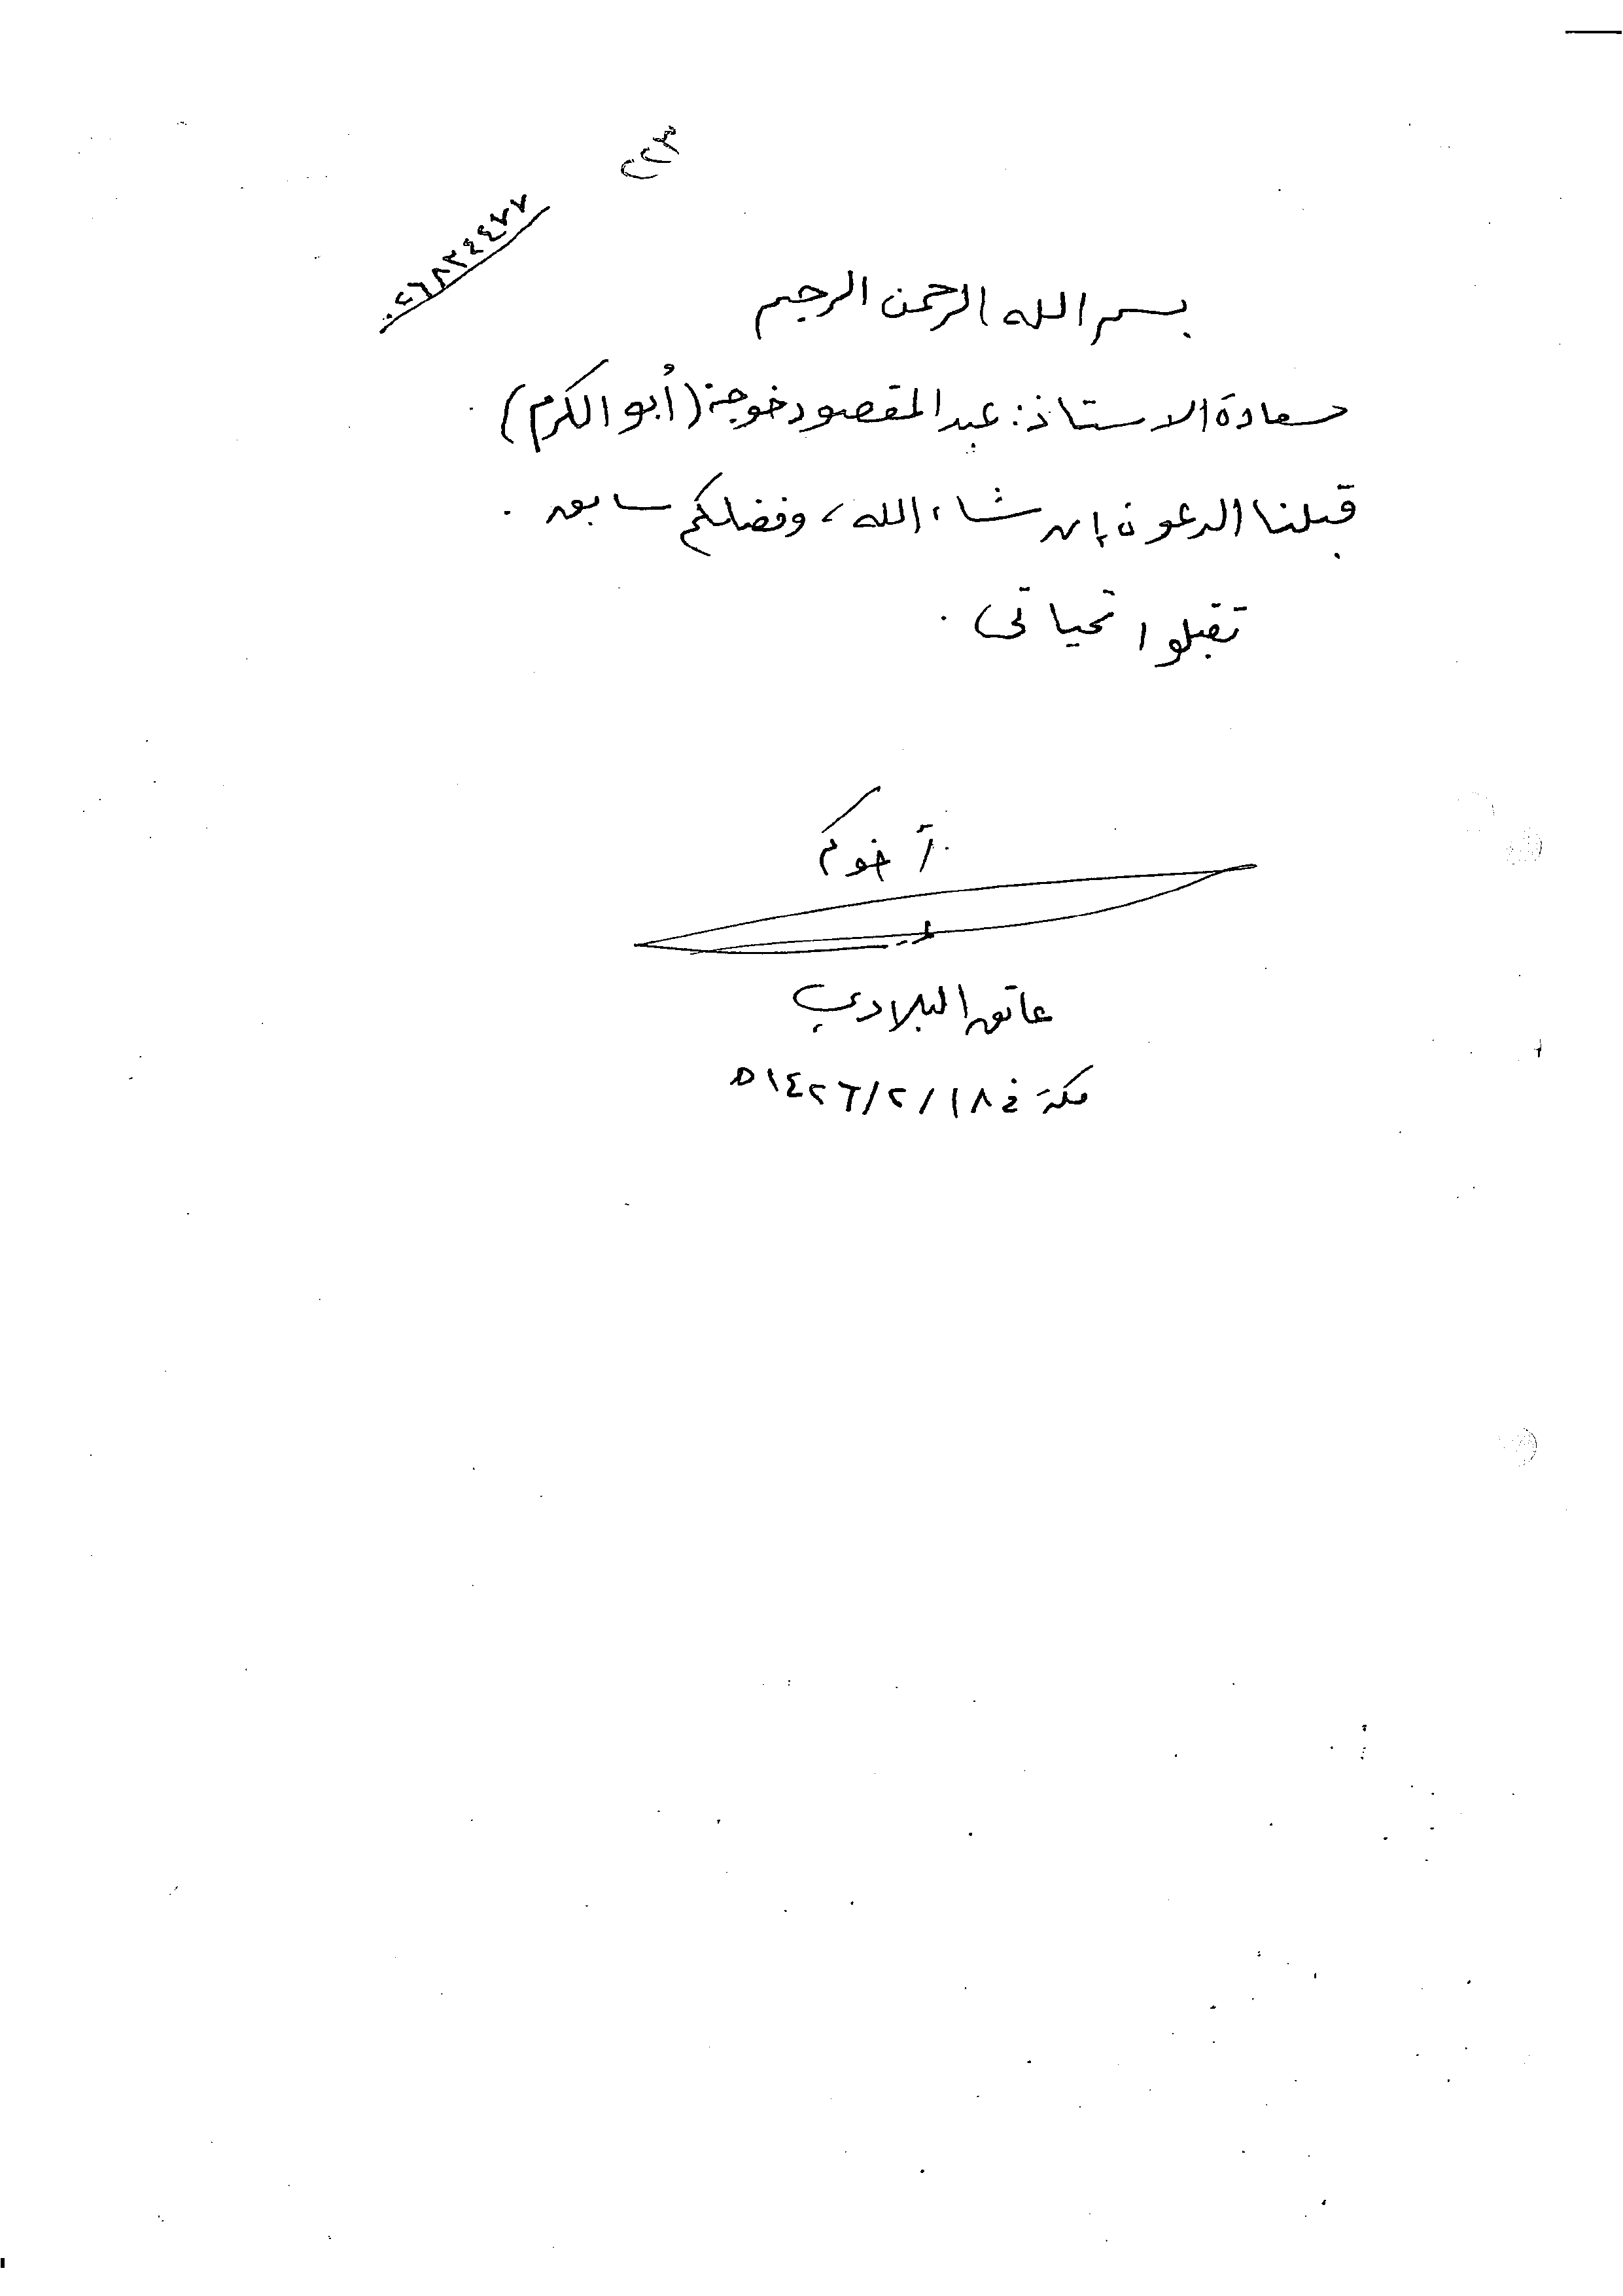 ٢٢٣
٠٢٦٨٢٤٤٧٧
بسم الله الرحمن الرحيم
سعادة الاستاذ: عبدالمقصود خوجة (أبو الكرم)
قبلنا الدعوة إن شاء الله، وفضلكم سابق.
تقبلوا تحياتى.
أخوكم
عاتق البلادي
مكة في ١٨/٢/١٤٢٦ه